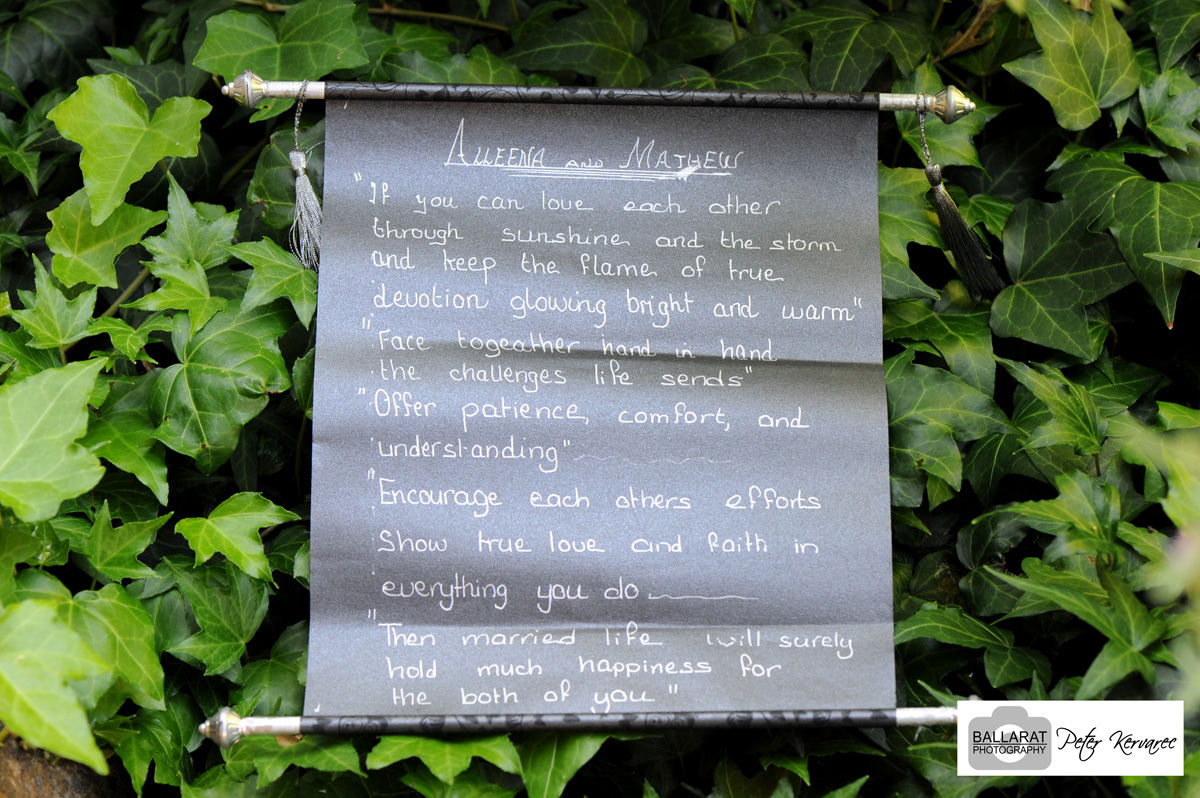 ALLEENA AND MATHEW
"If you can love each other
through sunshine and the storm
and keep the flame of true
devotion glowing bright and warm"
"Face togeather hand in hand
the challenges life sends"
"Offer patience, comfort, and
understanding"
"Encourage each others efforts
Show true love and faith in
everything you do
"Then married life will surely
hold much happiness for
the both of you"
BALLARAT
PHOTOGRAPHY
Peter Kervarec